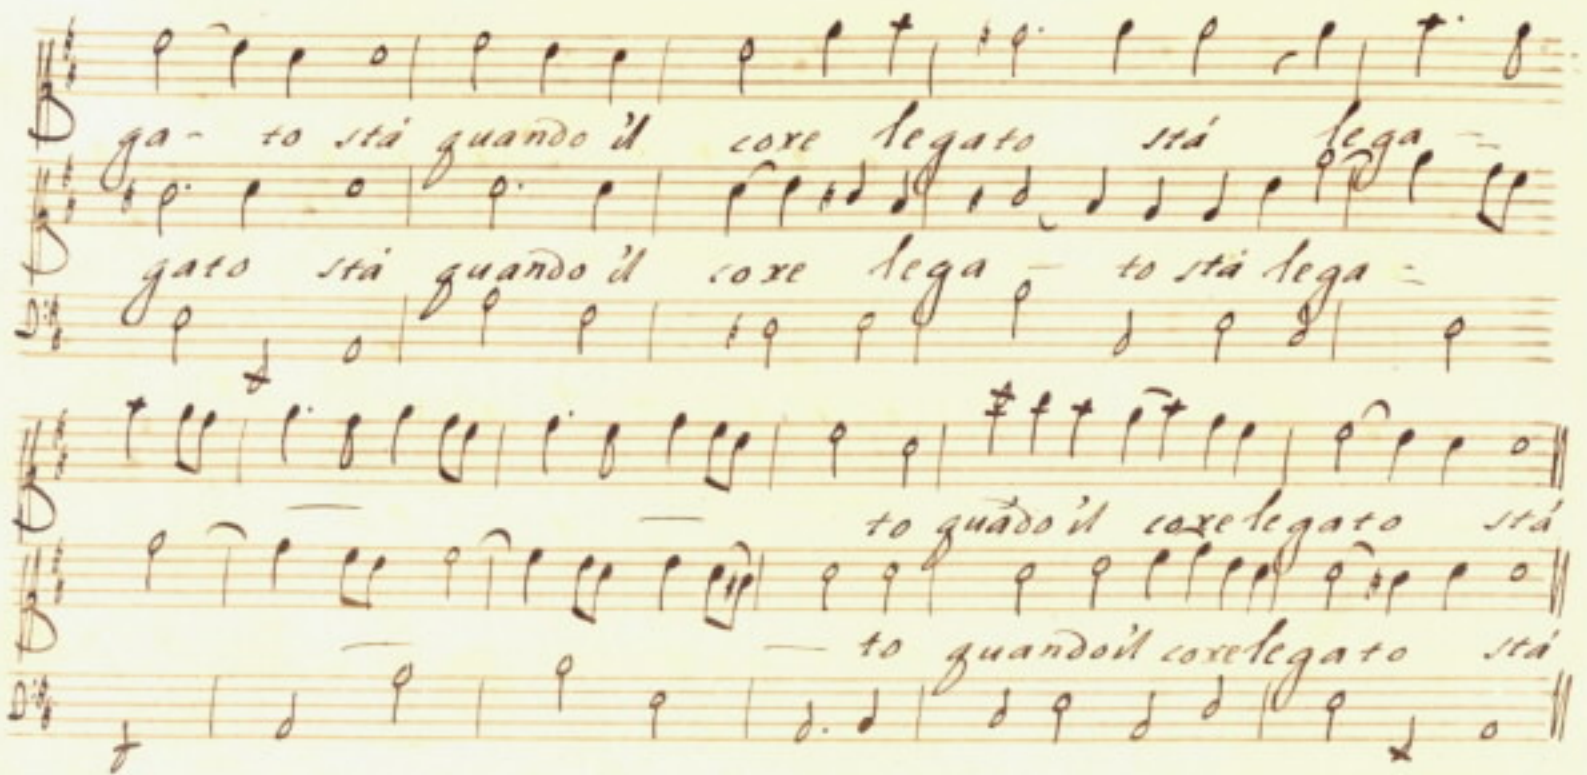 ga- to stá quando'il core legato stá lega -
gato stá quando'il core lega - to stá lega -
- - to quãdo'il core legato stá
- - to quando'il core legato stá